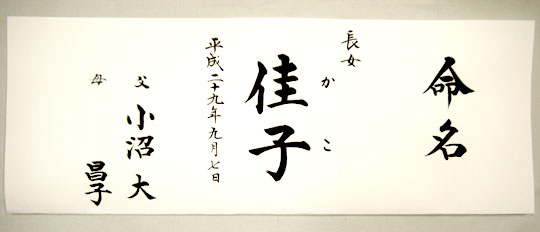 命名
長女
佳子
かこ
平成二十九年九月七日
父 小沼 大
母 昌子